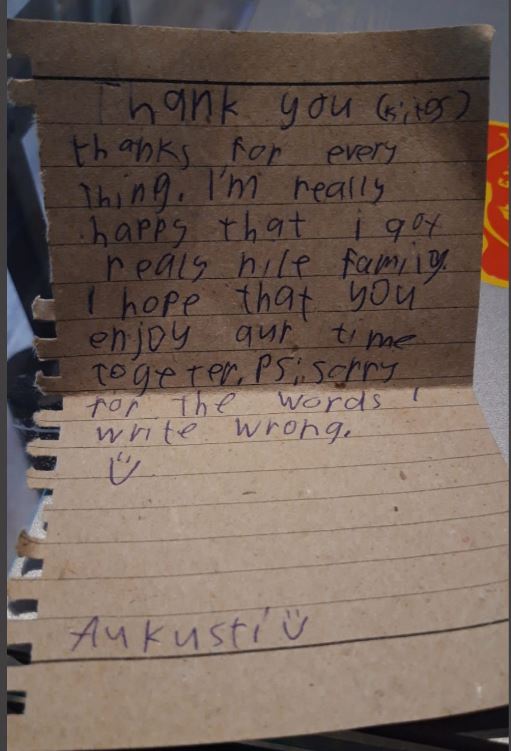 Thank you (kiitos)
thanks for every
thing. I'm really
happy that i got
realy nice family.
I hope that you
enjoy aur time
together. PS: sorry
for the words i
write wrong.
Aukusti